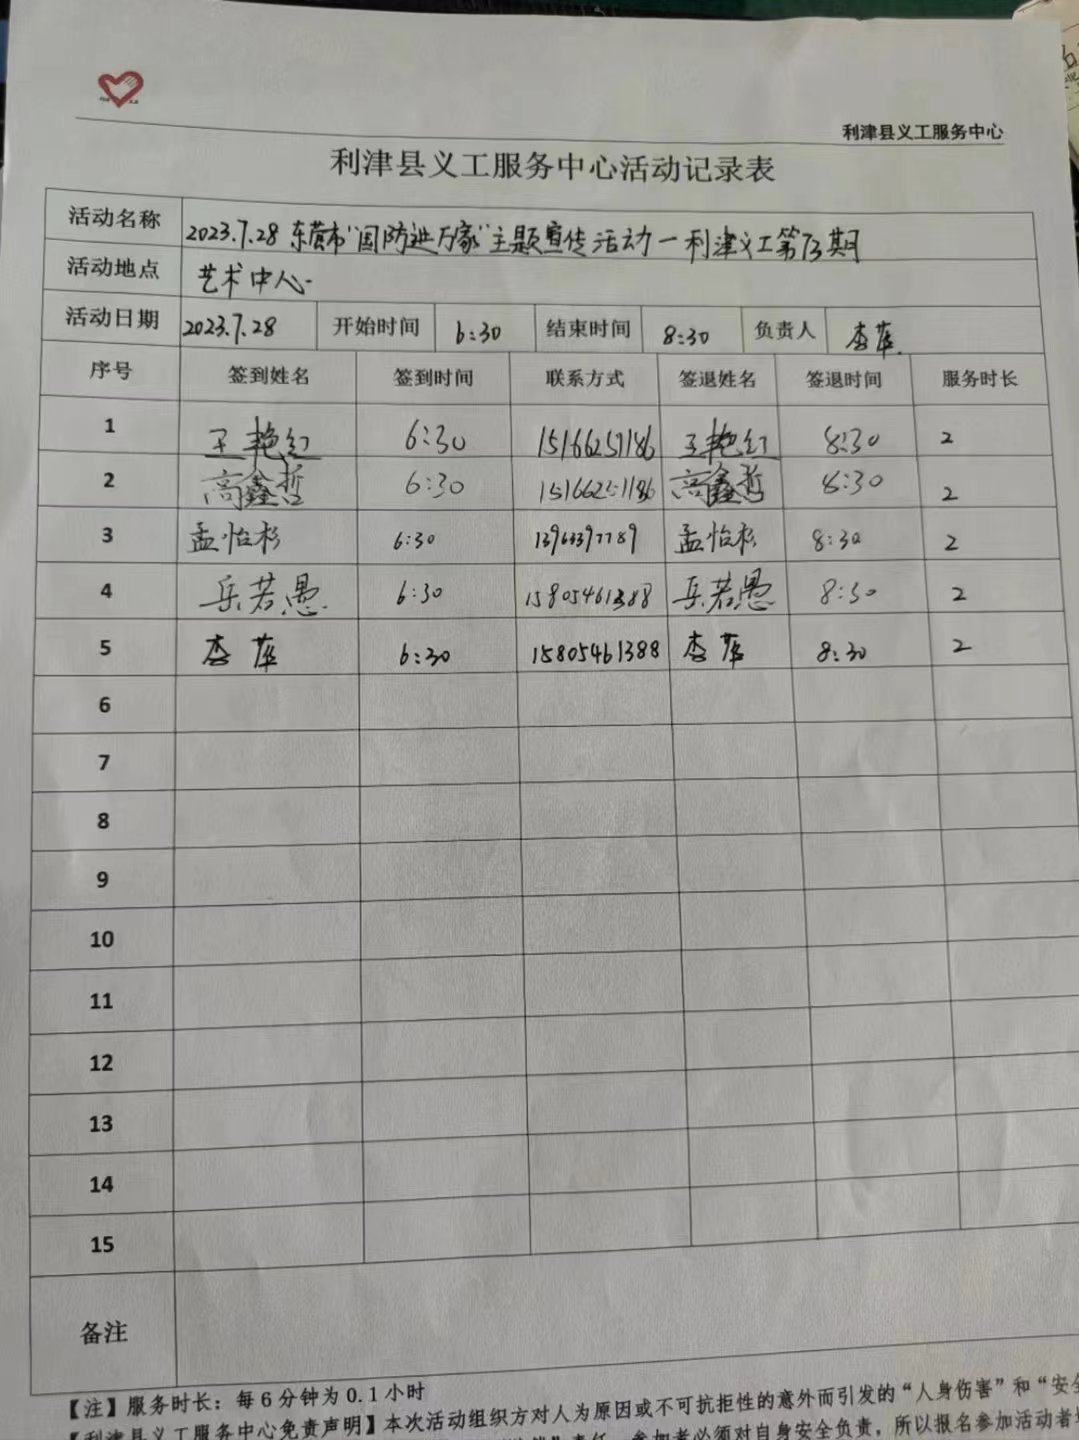 利津县义工服务中心
利津县义工服务中心活动记录表
活动名称 2023.7.28 东营市“国防进万家”主题宣传活动—利津义工第73期
活动地点 艺术中心
活动日期 2023.7.28 开始时间 6:30 结束时间 8:30 负责人 李萍
序号 签到姓名 签到时间 联系方式 签退姓名 签退时间 服务时长
1 王艳红 6:30 15166257186 王艳红 8:30 2
2 高鑫哲 6:30 15166257186 高鑫哲 8:30 2
3 孟怡杉 6:30 13963397789 孟怡杉 8:30 2
4 岳若愚 6:30 15805461388 岳若愚 8:30 2
5 李萍 6:30 15805461388 李萍 8:30 2
6
7
8
9
10
11
12
13
14
15
备注
【注】服务时长：每6分钟为0.1小时
【利津县义工服务中心免责声明】本次活动组织方对人为原因或不可抗拒性的意外而引发的“人身伤害”和“安全
责任，参加者必须对自身安全负责，所以报名参加活动者